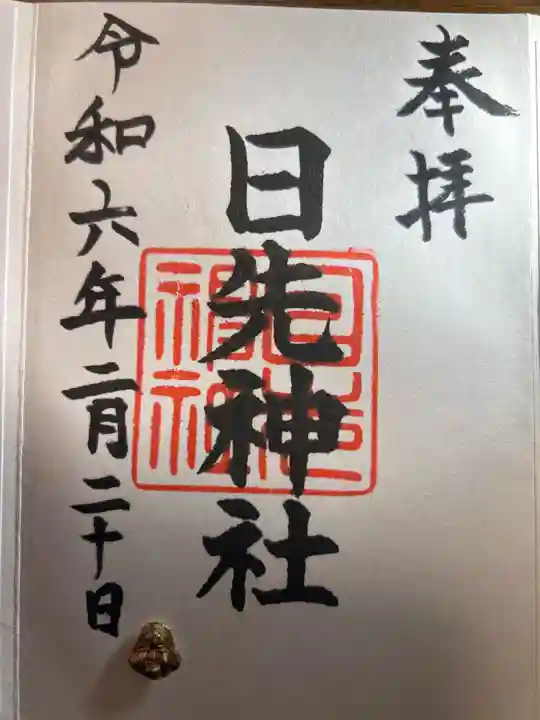 奉拝
日先神社
令和六年二月二十日